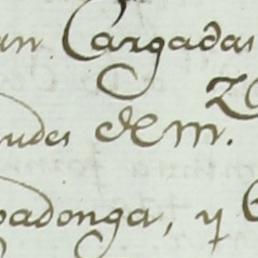 an Cargadas
udes de m.
adonga, y